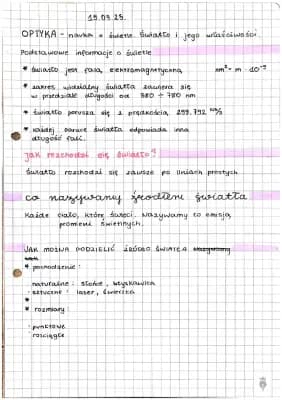 19.03.25.
OPTYKA - nauka o świetle. Światło i jego właściwości.
Podstawowe informacje o świetle
* światło jest falą elektromagnetyczną nm² = m · 10⁻⁹
* zakres widzialny światła zawiera się
w przedziale długości od 380 ÷ 780 nm
* światło porusza się z prędkością 299.792 km/s
* każdej barwie światła odpowiada inna
długość fali.
Jak rozchodzi się światło?
Światło rozchodzi się zawsze po liniach prostych
co nazywamy źródłem światła
Każde ciało, które świeci. Nazywamy to emisją
promieni świetlnych.
JAK MOŻNA PODZIELIĆ ŹRÓDŁO ŚWIATŁA
* pochodzenie:
naturalne: słońce, błyskawica
sztuczne: laser, świeczka
* rozmiary:
punktowe
rozciągłe